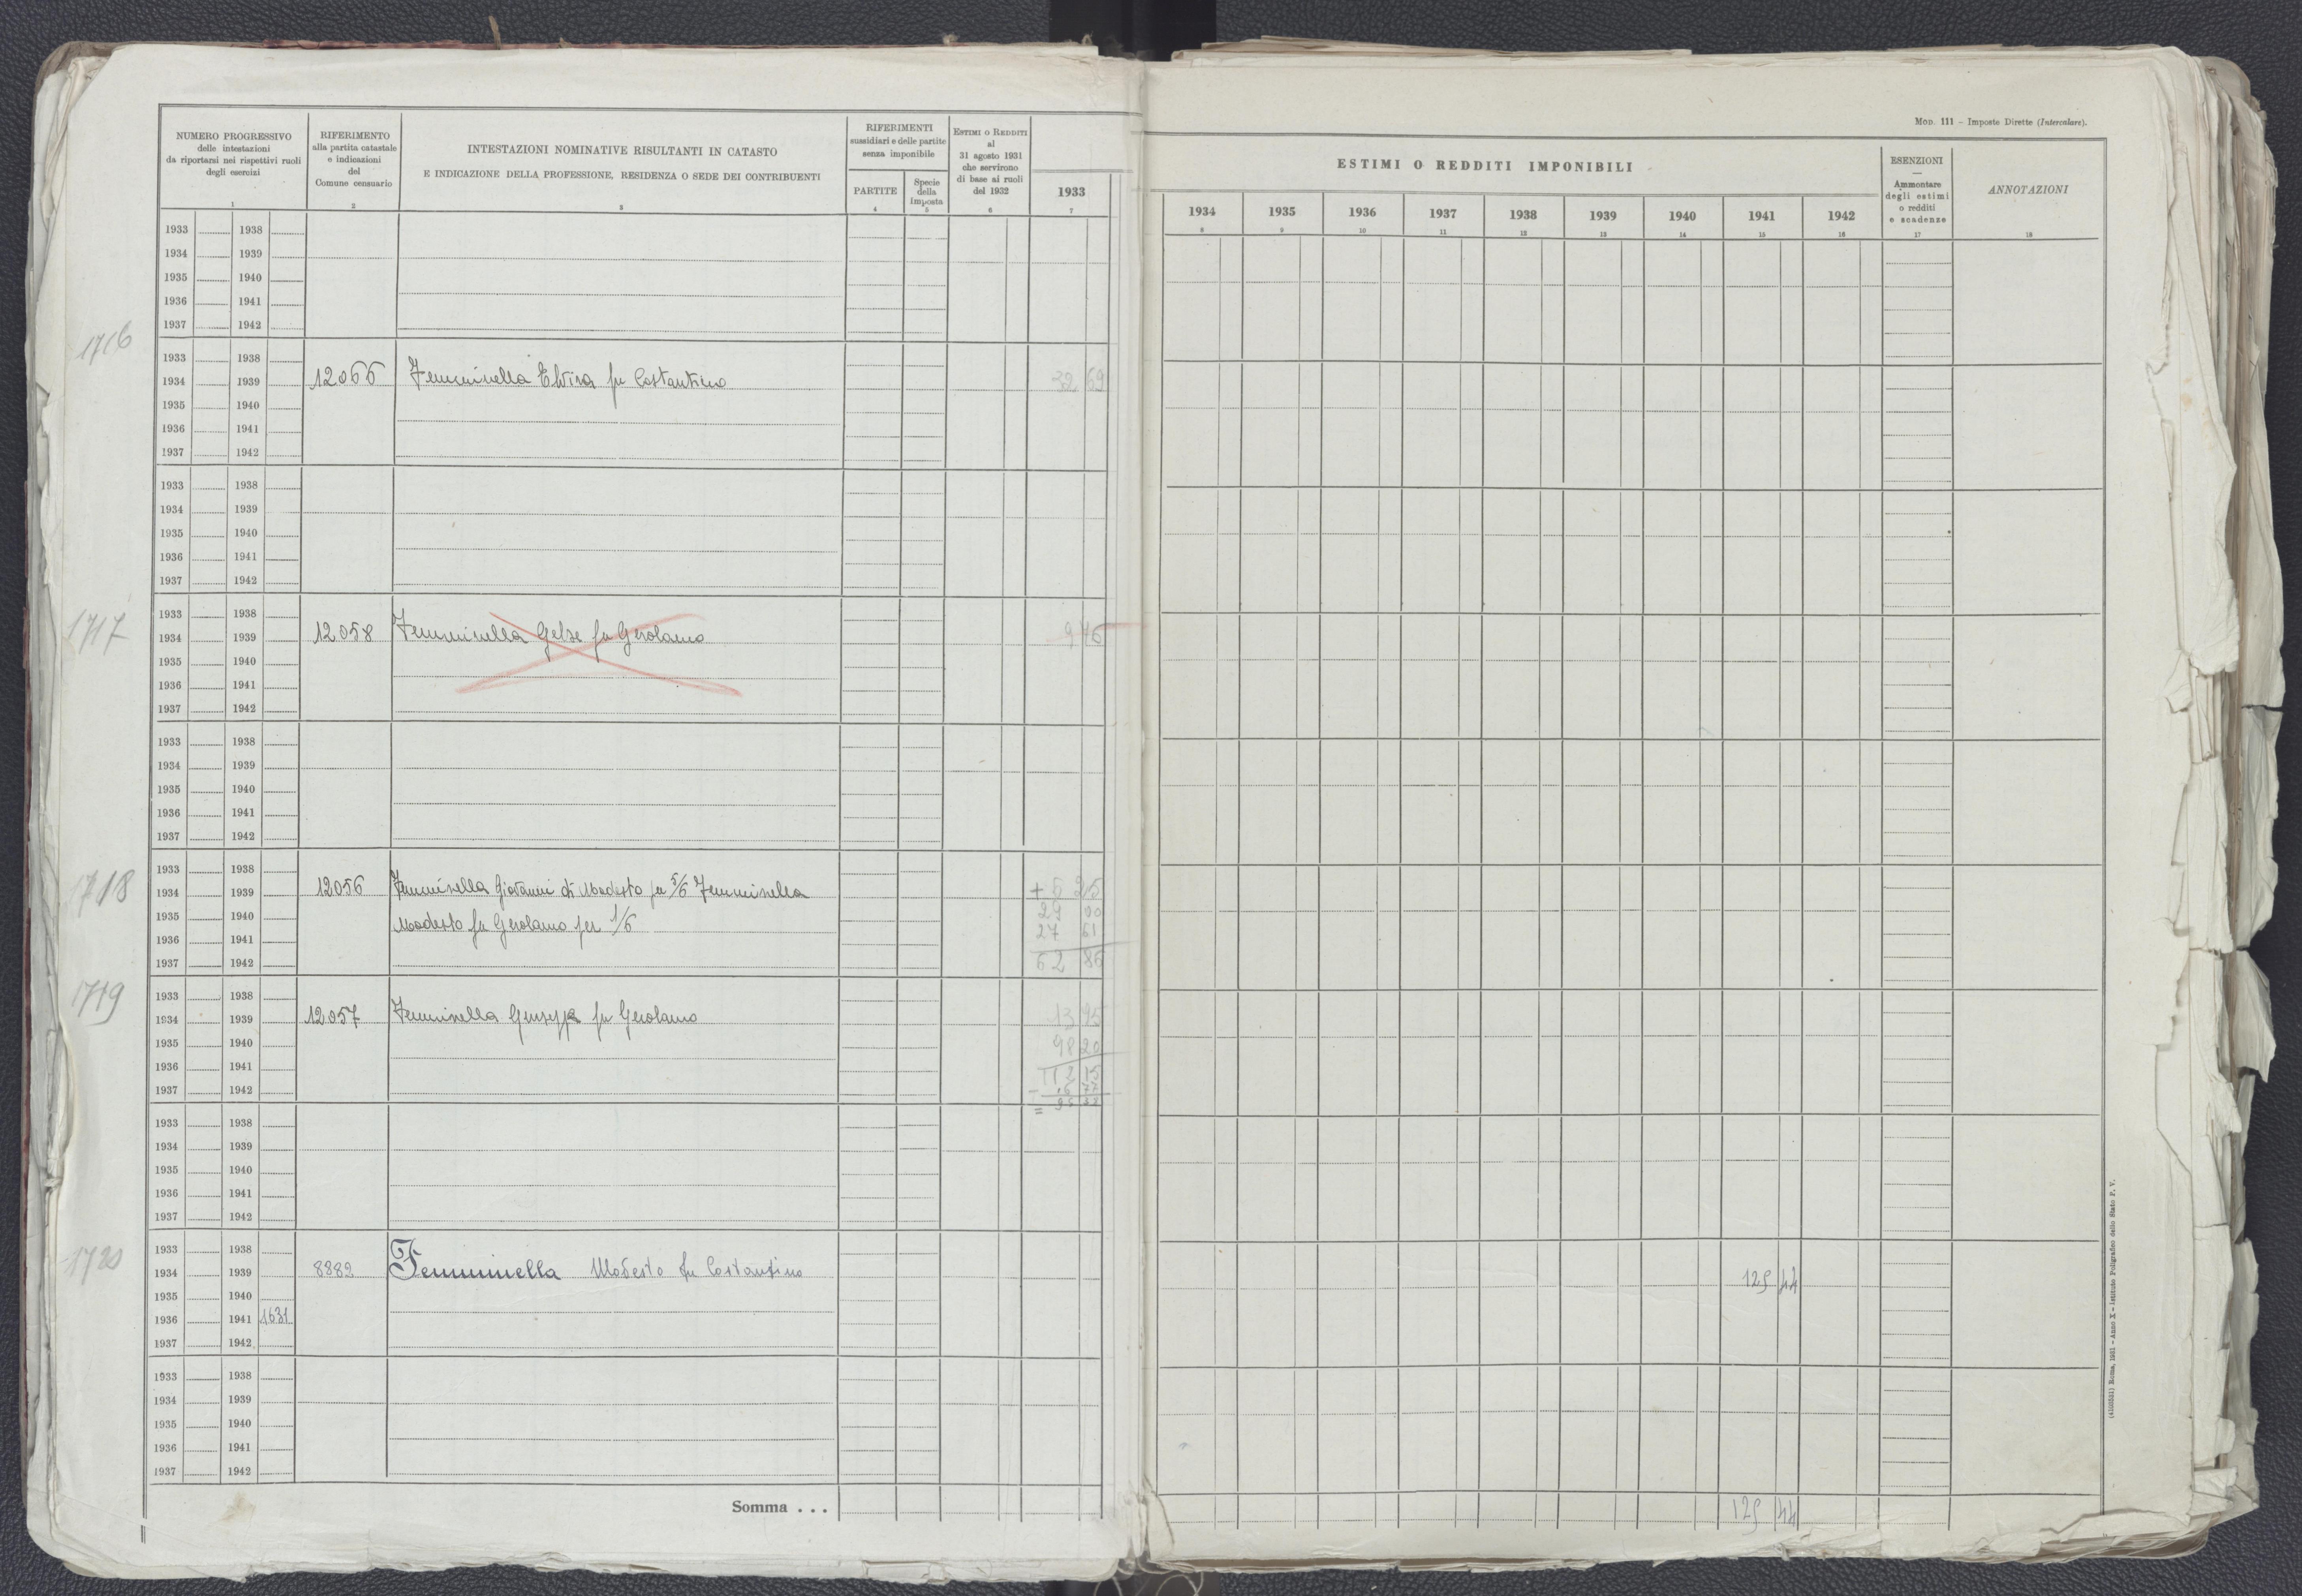 Mod. 111 – Imposte Dirette (Intercalare).
NUMERO PROGRESSIVO
delle intestazioni
da riportarsi nei rispettivi ruoli
degli esercizi
1
RIFERIMENTO
alla partita catastale
e indicazioni
del
Comune censuario
2
INTESTAZIONI NOMINATIVE RISULTANTI IN CATASTO
E INDICAZIONE DELLA PROFESSIONE, RESIDENZA O SEDE DEI CONTRIBUENTI
3
RIFERIMENTI
sussidiari e delle partite
senza imponibile
PARTITE
4
Specie
della
imposta
5
Estimi o Redditi
al
31 agosto 1931
che servirono
di base ai ruoli
del 1932
6
1933
7
ESTIMI O REDDITI IMPONIBILI
1934 1935 1936 1937 1938 1939 1940 1941 1942
8 9 10 11 12 13 14 15 16
ESENZIONI
—
Ammontare
degli estimi
o redditi
e scadenze
17
ANNOTAZIONI
18
1933 1938
1934 1939
1935 1940
1936 1941
1937 1942
1716
1933 1938
1934 1939 12066 Femminella Elvira fu Costantino 32 69
1935 1940
1936 1941
1937 1942
1933 1938
1934 1939
1935 1940
1936 1941
1937 1942
1717
1933 1938
1934 1939 12058 Femminella Gelse fu Gerolamo 9 46
1935 1940
1936 1941
1937 1942
1933 1938
1934 1939
1935 1940
1936 1941
1937 1942
1718
1933 1938
1934 1939 12056 Femminella Giovanni di Modesto per 5/6 Femminella + 6 25
1935 1940 Modesto fu Gerolamo per 1/6 29 00
1936 1941 27 61
1937 1942 62 86
1719
1933 1938
1934 1939 12057 Femminella Giuseppe fu Gerolamo 13 95
1935 1940 98 20
1936 1941 112 15
1937 1942
1933 1938
1934 1939
1935 1940
1936 1941
1937 1942
1720
1933 1938
1934 1939 8882 Femminella Modesto fu Costantino 125 44
1935 1940
1936 1941 1631
1937 1942
1933 1938
1934 1939
1935 1940
1936 1941
1937 1942
Somma . . . 125 44
(4103531) Roma, 1931 - Anno X - Istituto Poligrafico dello Stato P. V.